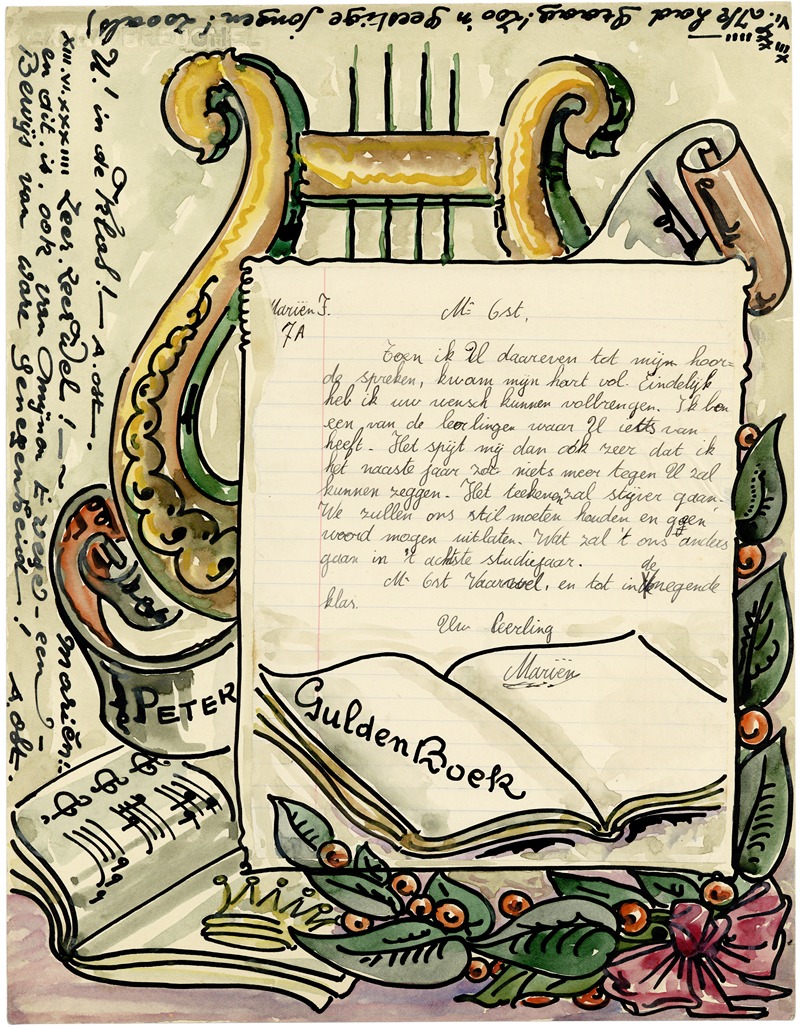 Mariën F.
7A
Mr Ost,
Toen ik U daareven tot mijn hoor=
de spreken, kwam mijn hart vol. Eindelijk
heb ik uw wensch kunnen volbrengen. Ik ben
een van de leerlingen waar U iets van
heeft. Het spijt mij dan ook zeer dat ik
het naaste jaar zoo niets meer tegen U zal
kunnen zeggen. Het teekenen zal stijver gaan.
We zullen ons stil moeten houden en geen
woord mogen uitlaten. Wat zal 't ons anders
gaan in 't achtste studiejaar.
Mr Ost Vaarwel, en tot in de negende
klas.
Uw leerling
Mariën
Gulden Boek
PETER
Ik had graag zoo'n geestige jongen! zooals
U! in de klas! — A. Ost.
XIII.VI.XXXIIII Zeer. Zeer Wel! — Mariën:
en dit. is. ook van Mijnen E wege - een -
Bewijs van ware Genegenheid! A. Ost.